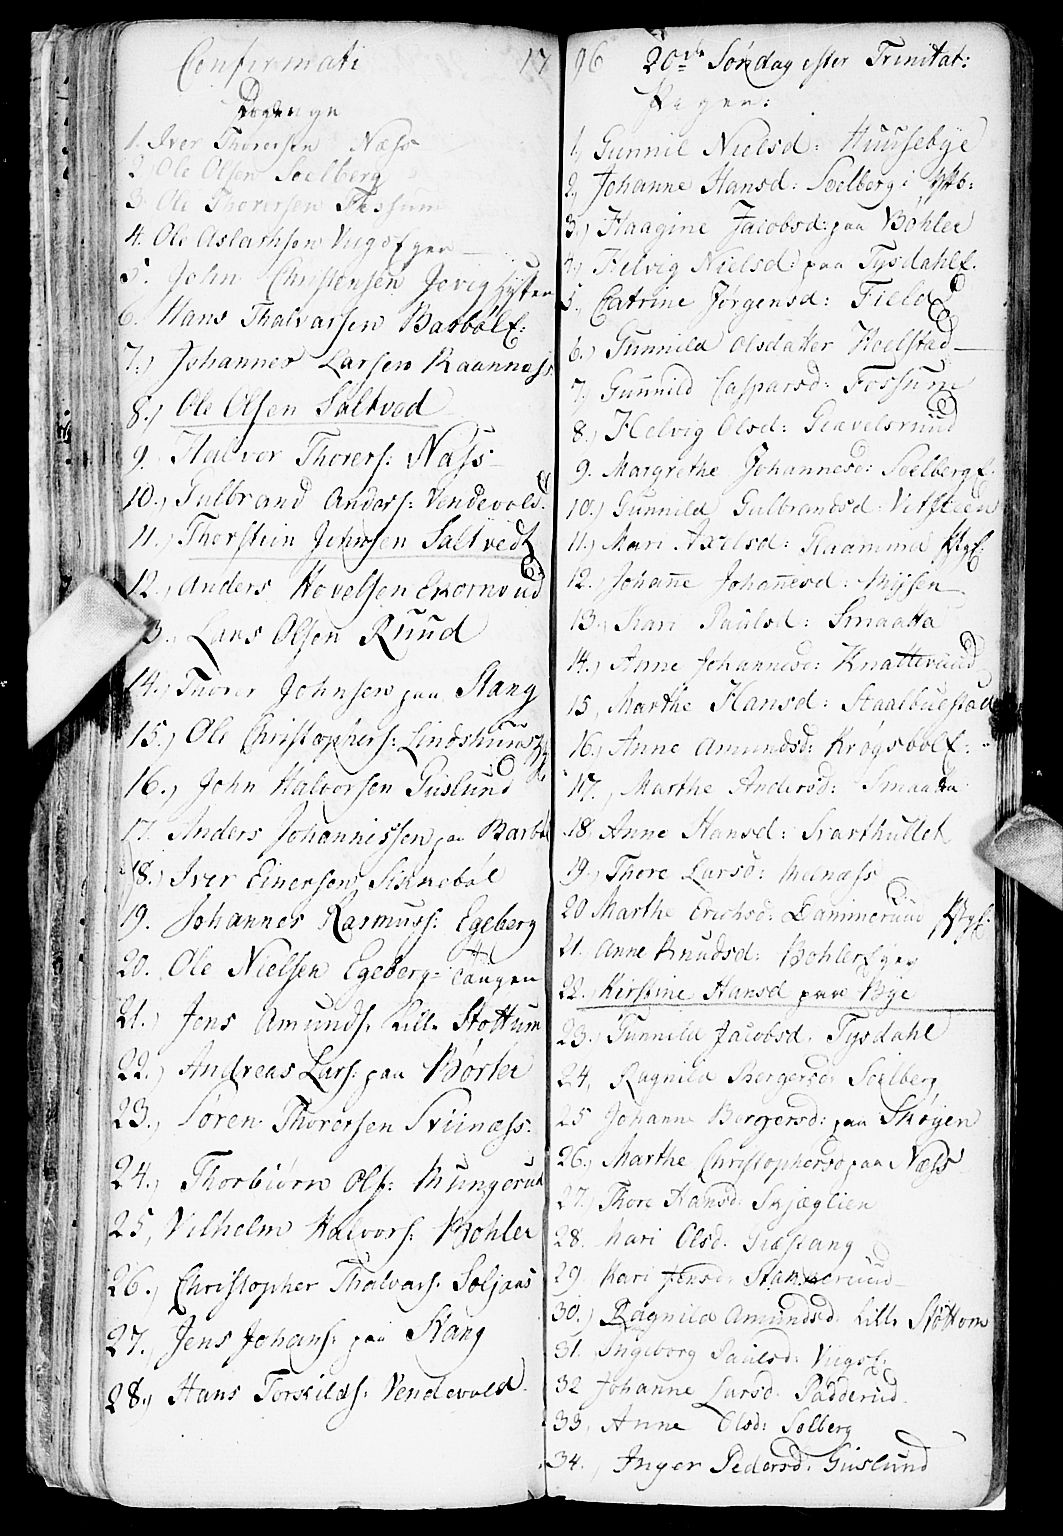 Confirmati 17
Drenge
1. Iver Thorersen Næss
2. Ole Olsen Soelberg
3. Ole Thorersen Fossum
4. Ole Aslachsen
5. John Christensen
6. Hans Thalvarsen Basbølf:
7.) Johannes Larsen Raannæss
8.) Ole Olsen Saltvad
9. Halvor Thorers: Næss
10.) Gulbrand Anders: Vendevold.
11.) Thorstein Jensen Saltvedt
12.) Anders Hovelsen Ekornrud
13. Lars Olsen Ruud
14.) Thorer Johnsen paa Stang
15.) Ole Christophers:
16.) John Halvorsen Guslund
17. Anders Johannissen paa Basbøl
18.) Iver Einersen Sikkebøl
19. Johannes Rasmuss: Egeberg
20. Ole Nielsen Egeberg= Tangen
21.) Jens Amunds: Lille Støttum
22.) Andreas Lars: paa Børter
23.) Søren Thorersen Sviinæss:
24.) Thorbiørn Ols: Mungerud
25, Vilhelm Halvors: Bøhler
26.) Christopher Thalvars: Soljaas
27. Jens Johans: paa Stang
28.) Hans Torkilds: Vendevold.
96 20de Søndag efter Trinitat:
Piger:
1, Gunnil Nielsd: Huusebye
2, Johanne Hansd: Soelberg:
3.) Haagine Jacobsd: paa Bøhler
4, Helvig Nielsd: paa Tysdahlf.
5. Catrine Jørgensd: Field
6.) Gunnild Olsdatter Hoelstad
7, Gunnild Casparsd: Fossum
8.) Helvig Olsd: Gravelsrud
9. Margrethe Johannesd: Soelbergf.
10.) Gunnild Gulbrandsd: Vitsteen
11.) Mari Axelsd:
12. Johane Johanesd: Mysen
13.) Kari Paulsd: Smaatta
14.) Anne Johannesd: Knatterud
15, Marthe Hansd: Staalbuestad
16.) Anne Amundsd: Krogsbølf:
17. Marthe Andersd: Smaatta
18. Anne Hansd: Svarthullet
19.) Thore Larsd:
20 Marthe Erichsd:
21. Anne Knudsd: Bøhler
22. Kerstine Hansd paa Bye
23.) Gunnild Jacobsd. Tysdahl
24, Ragnild Bergersd: Soelberg
25 Johanne Borgersd: paa Skøyen
26.) Marthe Christophersd paa Næss
27.) Thore Hansd: Skjæglien
28. Mari Olsd:
29. Kari Jensd:
30.) Ragnild Amundsd. Lille Støttom
31. Ingeborg Paulsd:
32 Johanne Larsd: Padderud.
33, Anne Olsd: Solberg
34.) Inger Pedersd. Guslund